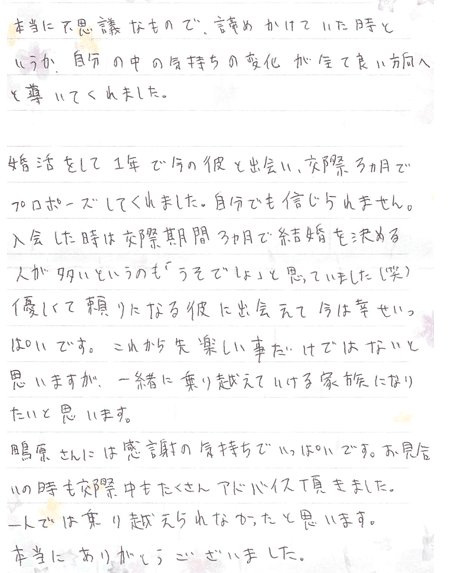 本当に不思議なもので、諦めかけていた時と
いうか、自分の中の気持ちの変化が全て良い方向へ
と導いてくれました。
婚活をして1年で今の彼と出会い、交際3カ月で
プロポーズしてくれました。自分でも信じられません。
入会した時は交際期間3カ月で結婚を決める
人が多いというのも「うそでしょ」と思っていました(笑)
優しくて頼りになる彼に出会えて今は幸せいっ
ぱいです。これから先楽しい事だけではないと
思いますが、一緒に乗り越えていける家族になり
たいと思います。
鴫原さんには感謝の気持ちでいっぱいです。お見合
いの時も交際中もたくさんアドバイス頂きました。
一人では乗り越えられなかったと思います。
本当にありがとうございました。